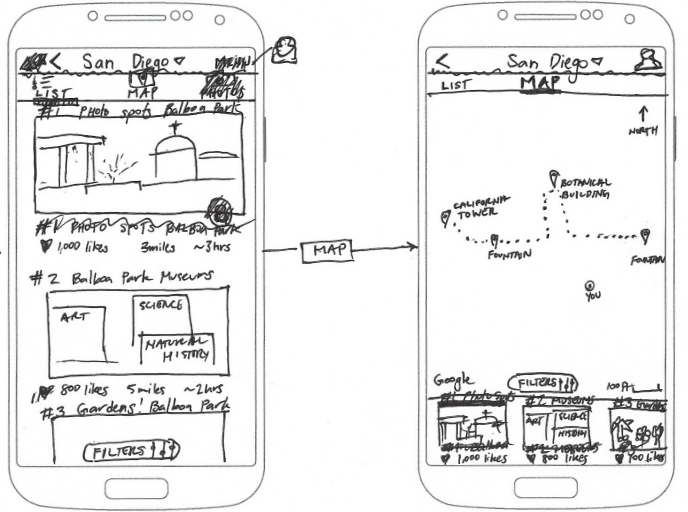 San Diego
LIST
MAP
PHOTOS
#1 PHOTO spots Balboa Park
#1 PHOTO SPOTS BALBOA PARK
1,000 likes 3miles ~3hrs
#2 Balboa Park Museums
ART
SCIENCE
NATURAL
HISTORY
800 likes 5miles ~2hrs
#3 Gardens! Balboa Park
FILTERS
MAP
San Diego
LIST
MAP
NORTH
BOTANICAL
BUILDING
CALIFORNIA
TOWER
FOUNTAIN
FOUNTAIN
YOU
Google
FILTERS
100ft
#1 PhotoSpots
#2 MUSEUMS
#3 Gardens
ART
SCIENCE
HISTORY
1,000 likes
800 likes
700 likes